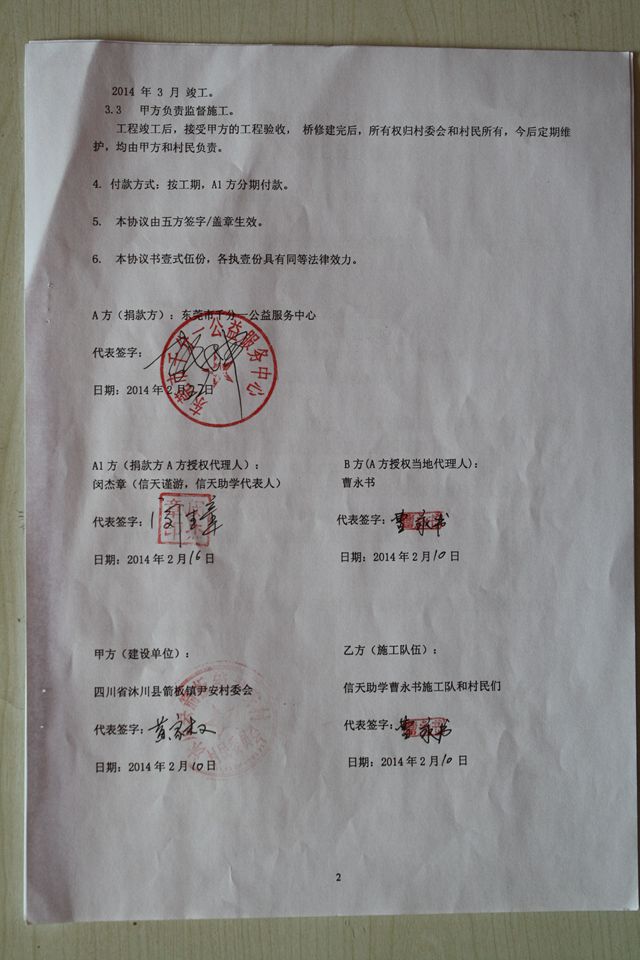 2014 年 3 月 竣工。
3.3 甲方负责监督施工。
工程竣工后，接受甲方的工程验收， 桥修建完后，所有权归村委会和村民所有，今后定期维
护，均由甲方和村民负责。
4. 付款方式：按工期，A1 方分期付款。
5. 本协议由五方签字/盖章生效。
6. 本协议书壹式伍份，各执壹份具有同等法律效力。
A 方（捐款方）：东莞市千分一公益服务中心
代表签字：
东莞市千分一公益服务中心
日期：2014 年 2 月 日
A1 方（捐款方 A 方授权代理人）：
闵杰章（信天谨游，信天助学代表人）
代表签字：
日期：2014 年 2 月 16 日
B 方(A 方授权当地代理人)：
曹永书
代表签字：曹永书
日期：2014 年 2 月 10 日
甲方（建设单位）：
四川省沐川县箭板镇尹安村委会
代表签字：黄家权
日期：2014 年 2 月 10 日
乙方（施工队伍）：
信天助学曹永书施工队和村民们
代表签字：曹永书
日期：2014 年 2 月 10 日
2